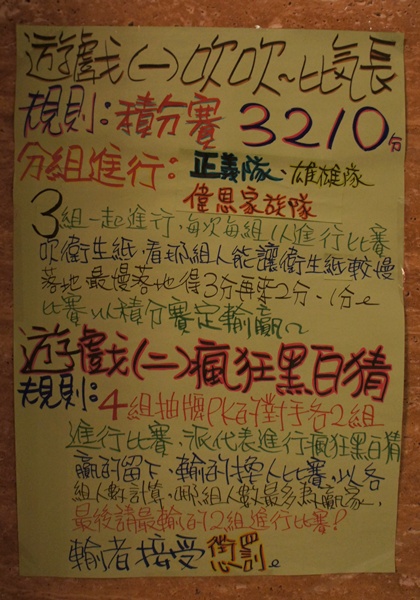 遊戲(一)吹吹~比氣長
規則:積分賽 3210分
分組進行:正義隊、雄雄隊
偉恩家族隊
3組一起進行,每次每組1人進行比賽
吹衛生紙,看那組人能讓衛生紙較慢
落地最慢落地得3分再來2分、1分。
比賽以積分賽定輸贏~
遊戲(二)瘋狂黑白猜
規則:4組抽牌PK的對手各2組
進行比賽、派代表進行瘋狂黑白猜
贏的留下、輸的換人比賽,以各
組人數計算,哪組人數最多為贏家、
最後請最輸的2組進行比賽!
輸者接受懲罰。